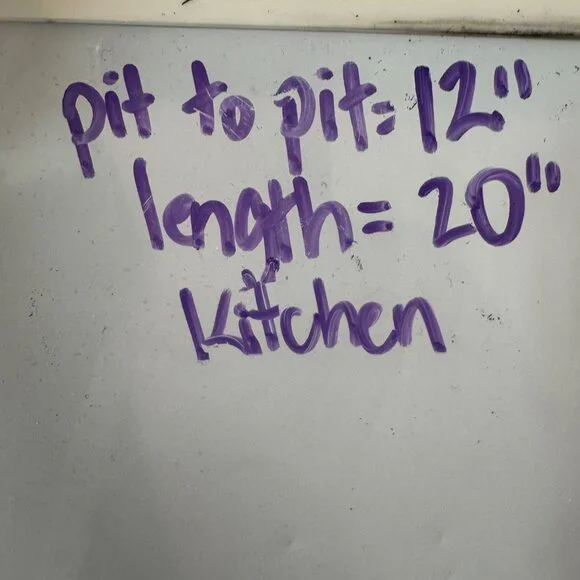 pit to pit= 12"
length= 20"
Kitchen